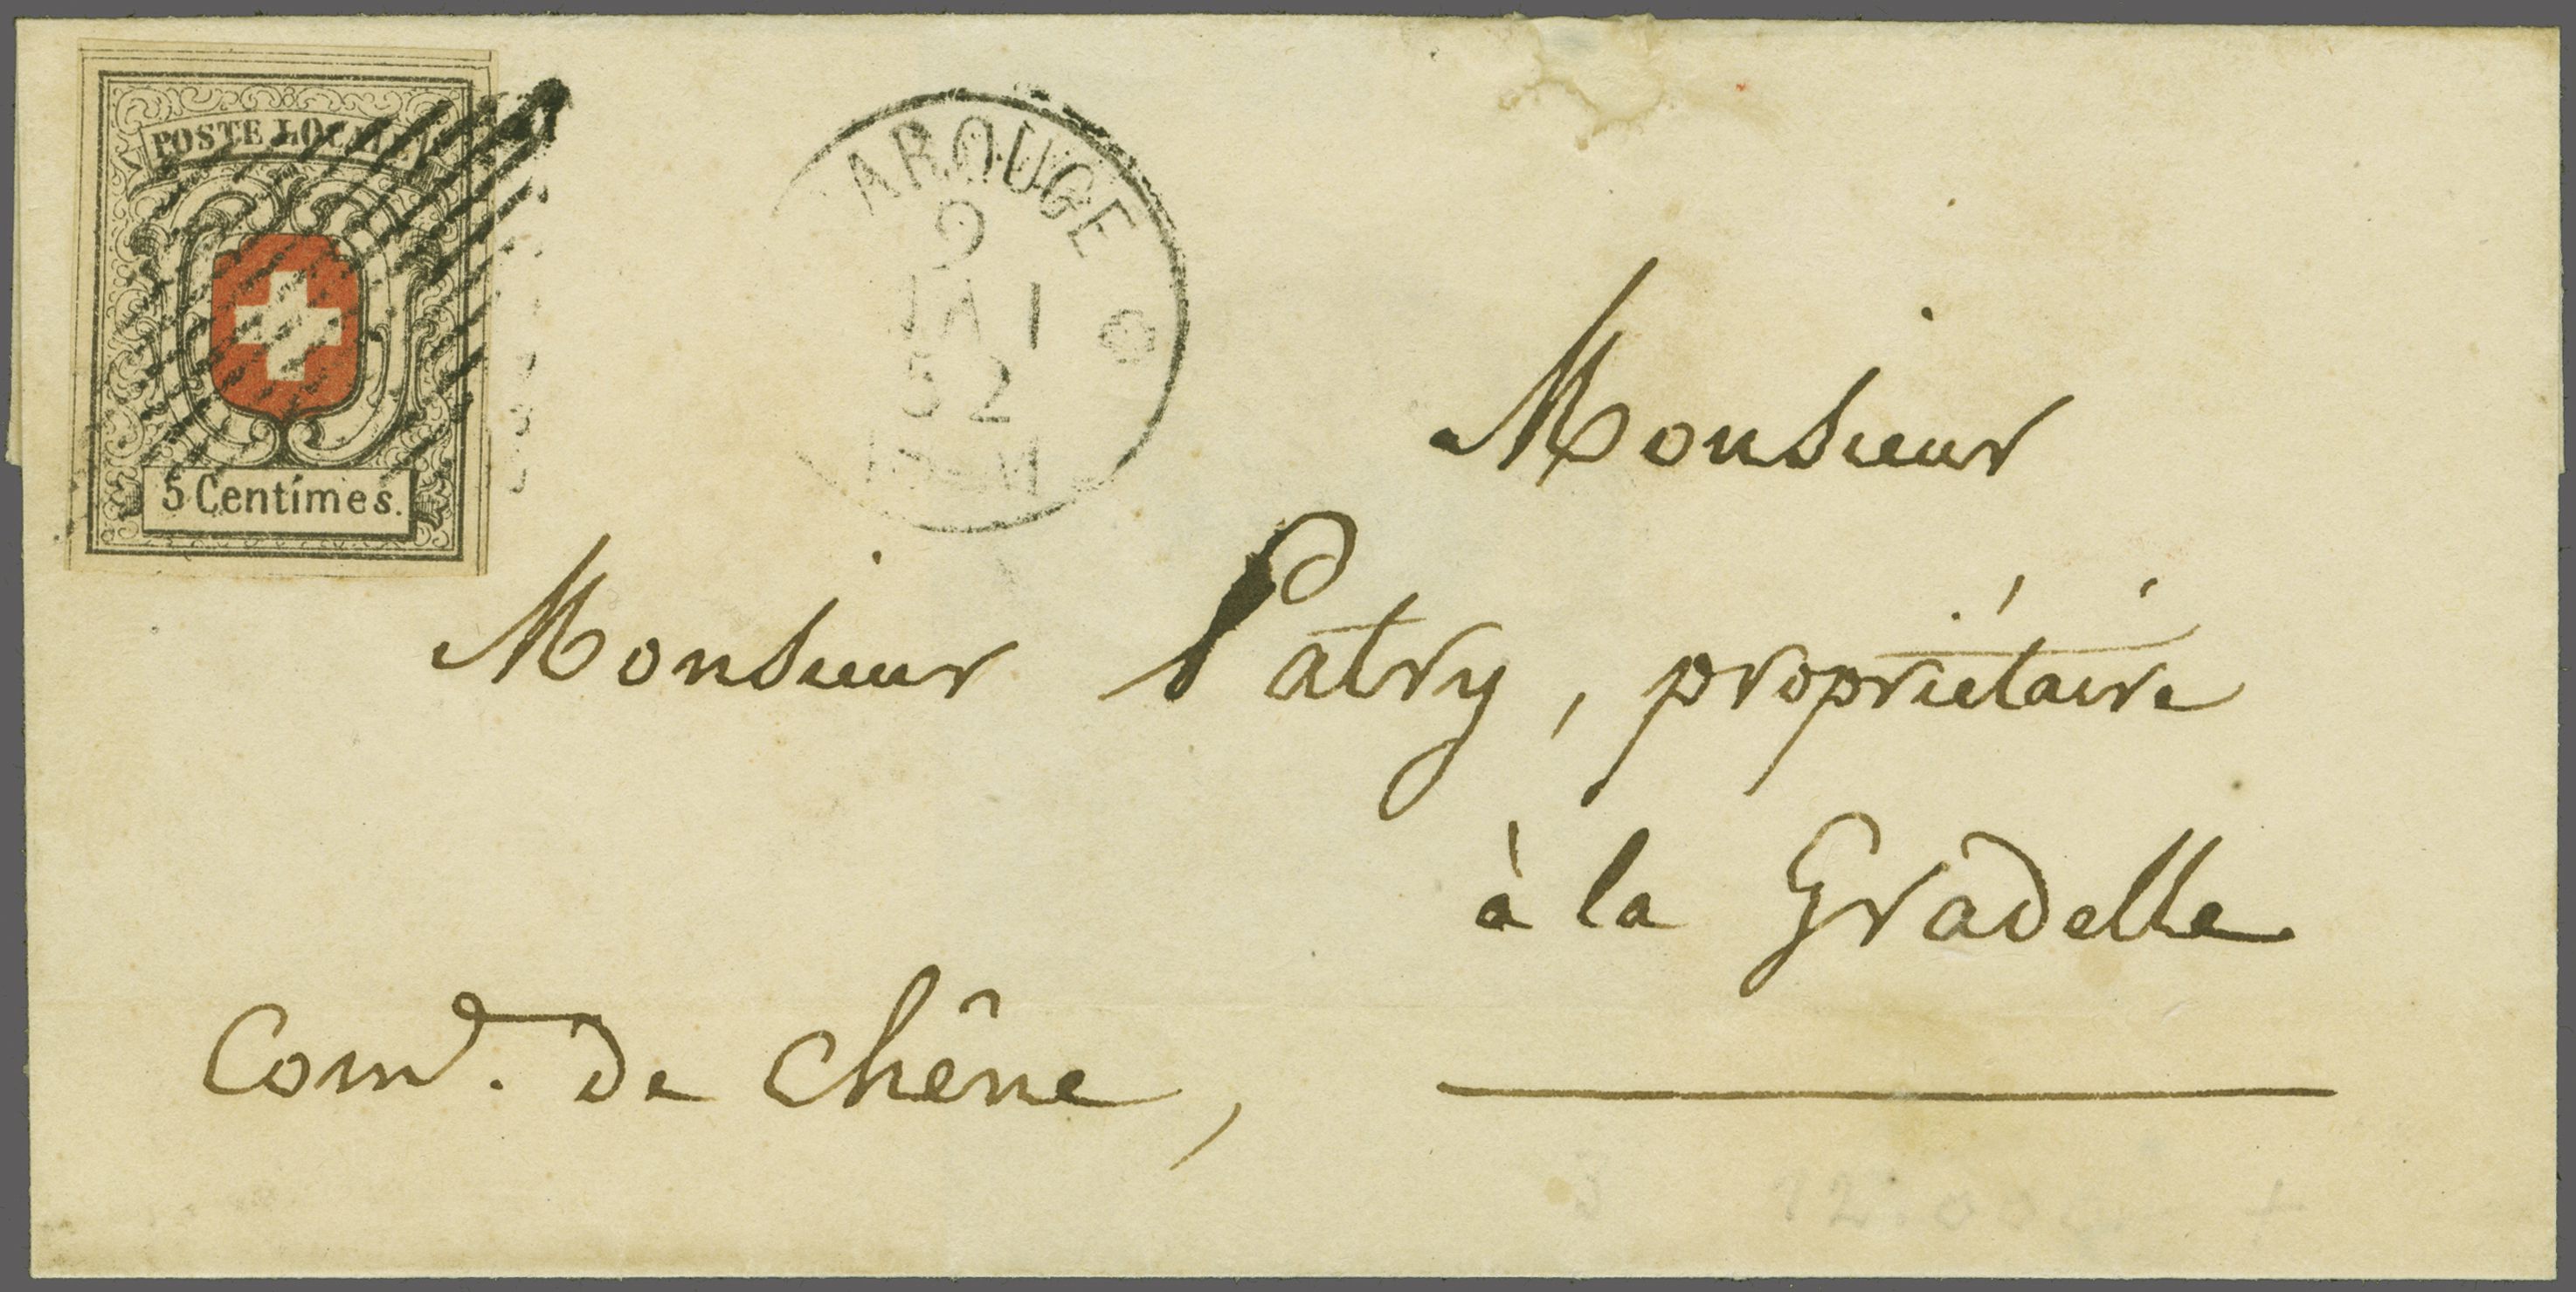 POSTE LOCALE
5 Centimes.
AROUGE
9
52
Monsieur
Monsieur Patry, propriétaire
à la Gradelle
de Chêne,